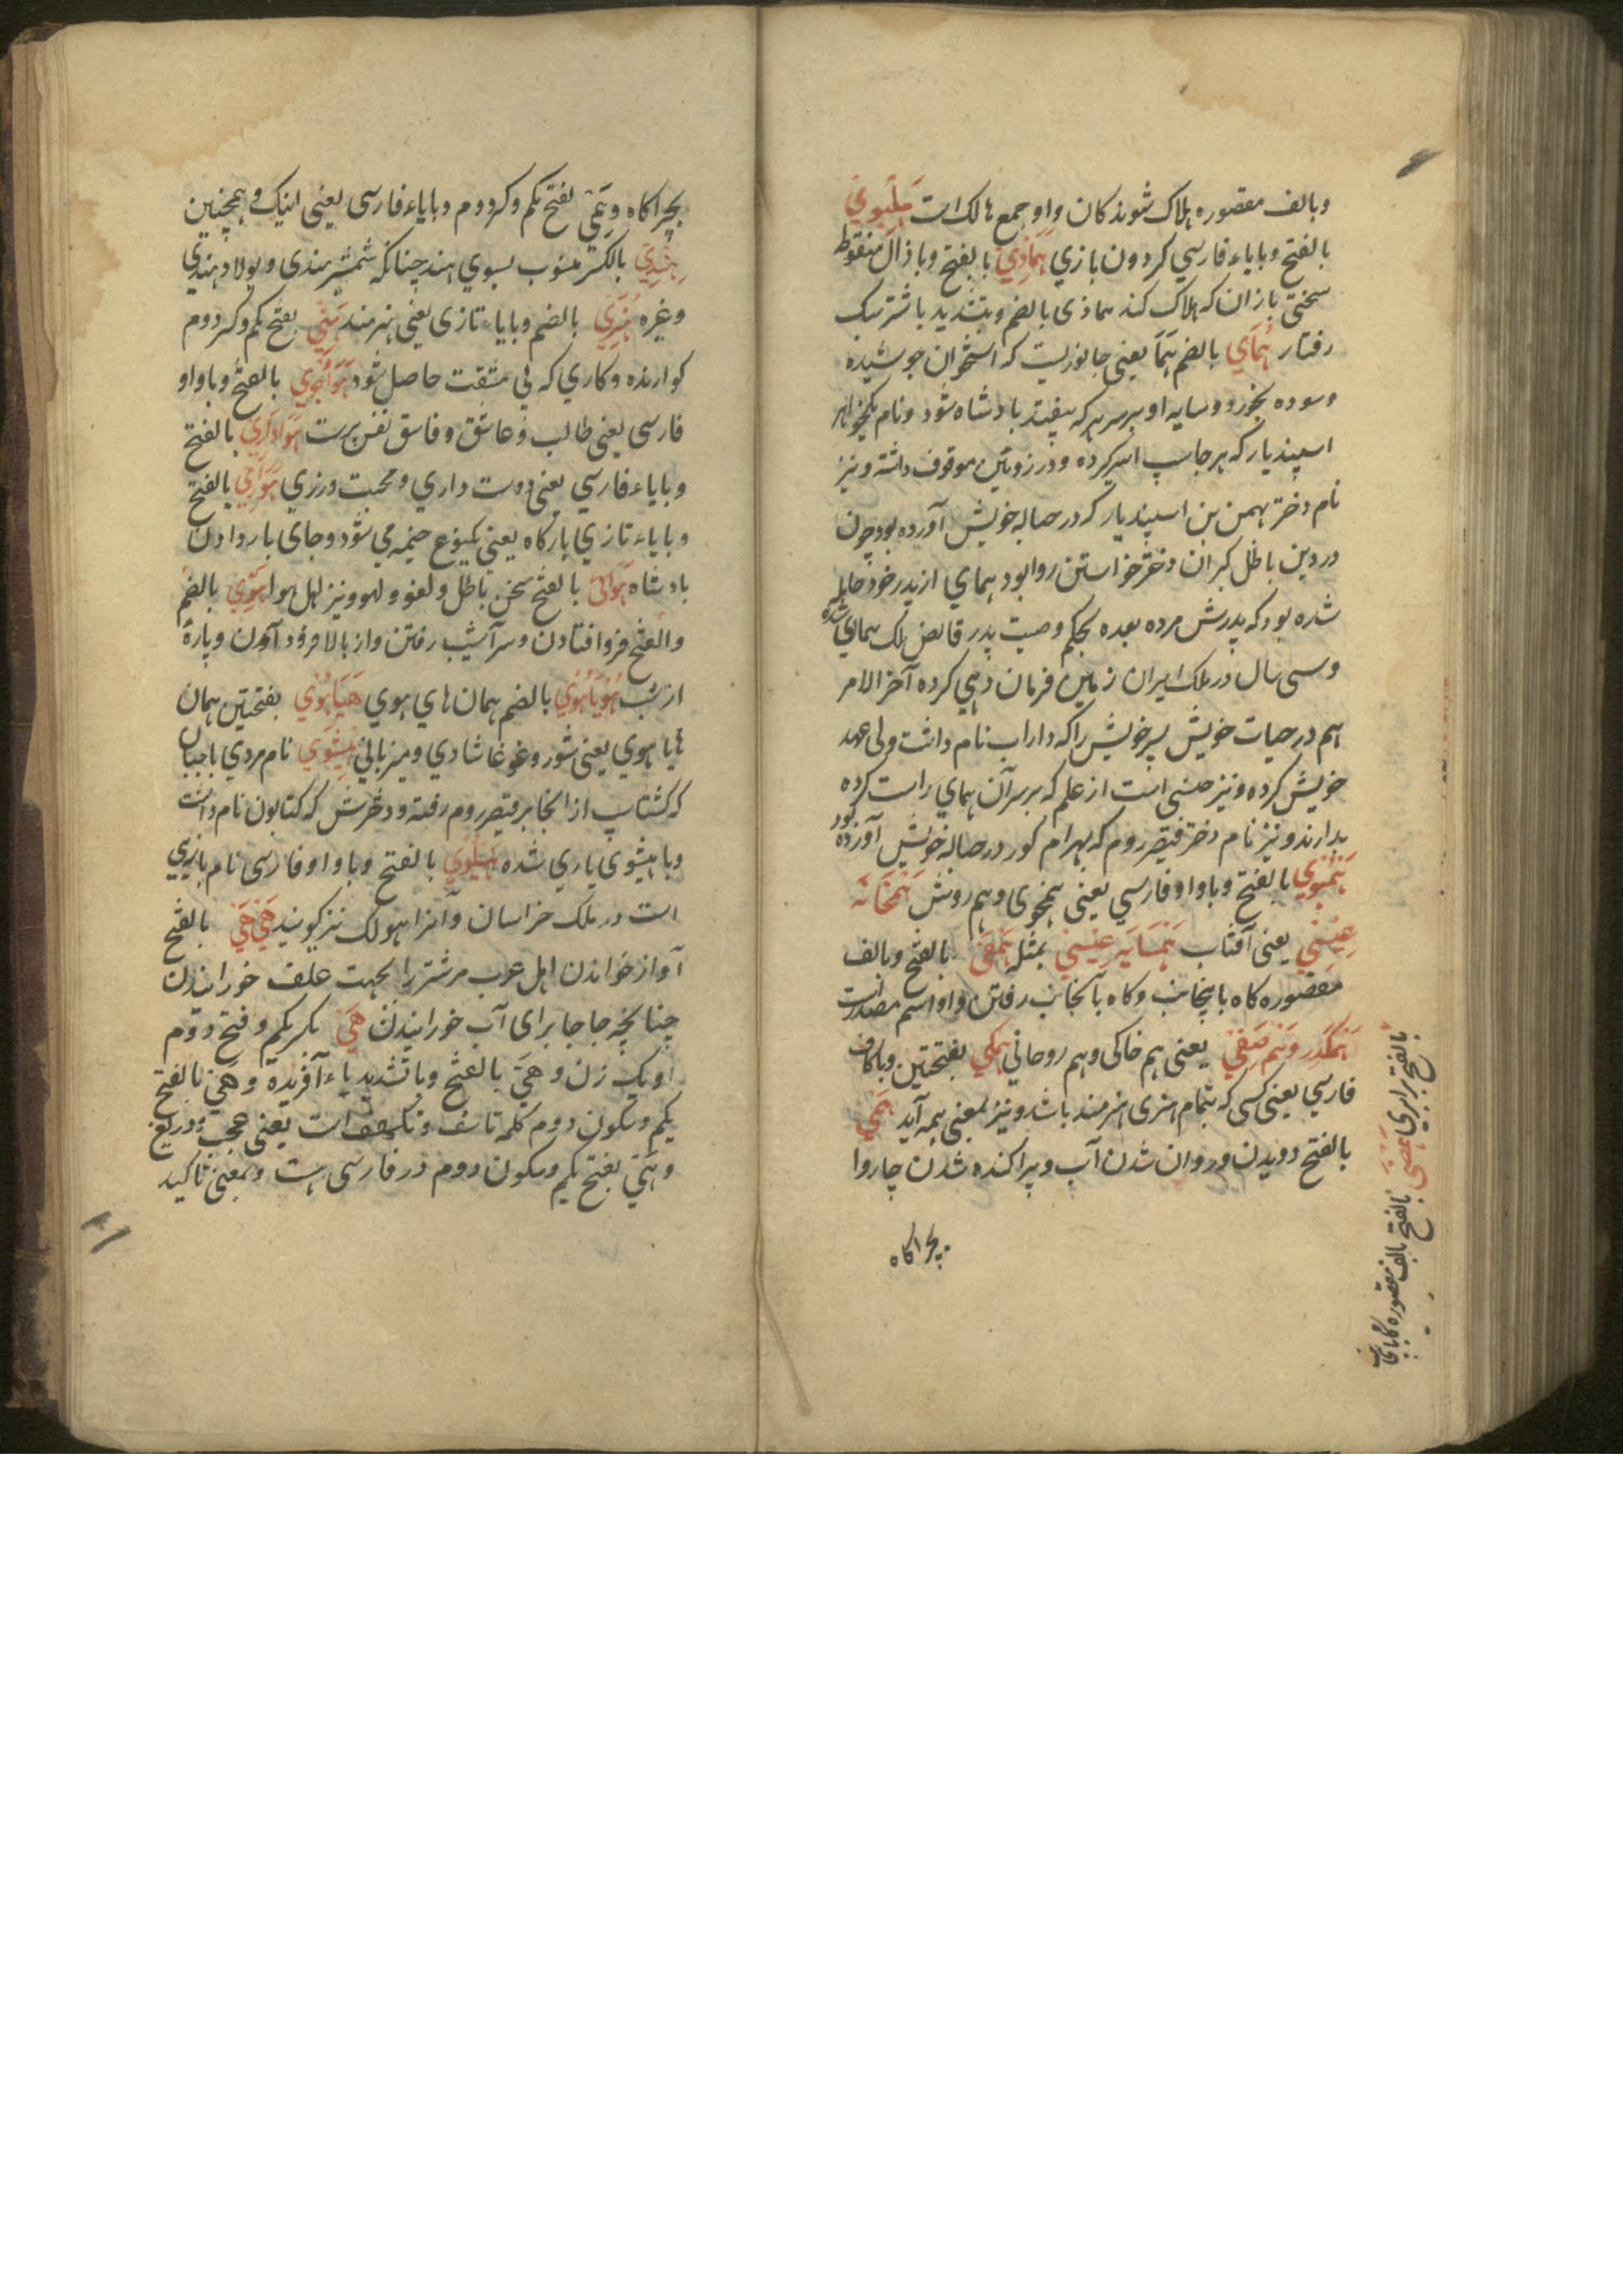 وبالف مقصوره هلاک شوندکان واو جمع هالک است هلبوي
بالفتح وباياء فارسي کردون بازي هماذي بالفتح وبا ذال منقوط
سختي بازان که هلاک کند هماذی بالضم وبتشديد باشتر سبک
رفتار هماي بالضم هما يعنی جانوريست که استخوان جوشيده
وسوده بخورد وسايه او بر سر هر که بيفتد بادشاه شود ونام يکخواهر
اسپنديار که ارجاسپ اسير کرده ودر زوبين موقوف داشته ونيز
نام دختر بهمن بن اسپنديار که در حباله خويش آورده بود چون
در دين باطل کبران دختر خواستن روا بود همای از پدر خود حامله
شده بود که پدرش مرده بعده بحکم وصيت پدر قابض ملک همای شده
وسی سال در ملک ايران زمين فرمان دهی کرده آخر الامر
هم در حيات خويش پسر خويش را که داراب نام داشت ولی عهد
خويش کرده ونيز جنسی است از علم که بر سر آن همای راست کرده
بدارند ونيز نام دختر قيصر روم که بهرام کور در حباله خويش آورده بود
بالفتح وباواو فارسي يعنی همخوی وهم روش همخانه
عيسی يعنی آفتاب همسايه عيسی بمثله همقی بالفتح وبالف
مقصوره کاه باينجانب وکاه بآنجانب رفتن واو اسم مصدرست
يعنی هم خاکی وهم روحانی همکی بفتحتين وبا کاف
فارسي يعنی کسی که بتمام هنری هنرمند باشد ونيز بمعنی همه آيد همی
بالفتح دويدن وروان شدن آب وپراکنده شدن چاروا
بچراکاه
بالفتح برابری بالفتح بالف مقصوره
بچراکاه وهمی بفتح يکم وکسر دوم وباياء فارسی يعنی اينک وهمچنين
هندي بالکسر منسوب بسوي هند چنانکه شمشير هندی وپولاد هندی
وغيره هنري بالضم وباياء تازی يعنی هنرمند هنی بفتح يکم وکسر دوم
کوارنده وکاري که بی مشقت حاصل شود هواجوي بالفتح وباواو
فارسی يعنی طالب وعاشق وفاسق نفس پرست هواداري بالفتح
وباياء فارسي يعنی دوست داري ومحبت ورزي هوارى بالفتح
وباياء تازي بارکاه يعنی يکنوع خيمه می شود وجای بار دادن
بادشاه هوائی بالفتح سخن باطل ولغو ولهو ونيز اهل هوا هوي بالضم
والفتح فروافتادن وسرآشيب رفتن واز بالا فرود آمدن وپارهٔ
از شب هوياهوي بالضم همان هاي هوي هياهوي بفتحتين همان
هايا هوي يعنی شور وغوغا شادي وميزبانی هيشوي نام مردي باجبان
که کشتاسپ از آنجا بر قيصر روم رفته ودخترش که کتابون نام داشت
وبا هيشوی ياري شده هيلوي بالفتح وباواو فارسی نام بازيي
است در ملک خراسان وآنرا هولک نيز کويند هی هی بالفتح
آواز خواندن اهل عرب مر شتر را بجهت علف خورانيدن
چنانچه جاجا برای آب خورانيدن هی بکسر يکم وفتح دوم
او يک زن وهی بالفتح وبا تشديد ياء آفريده وهی بالفتح
يکم وسکون دوم کلمه تاسف است يعنی عجب ودريغ
وهی بفتح يکم وسکون دوم در فارسی هست وبمعنی تاکيد